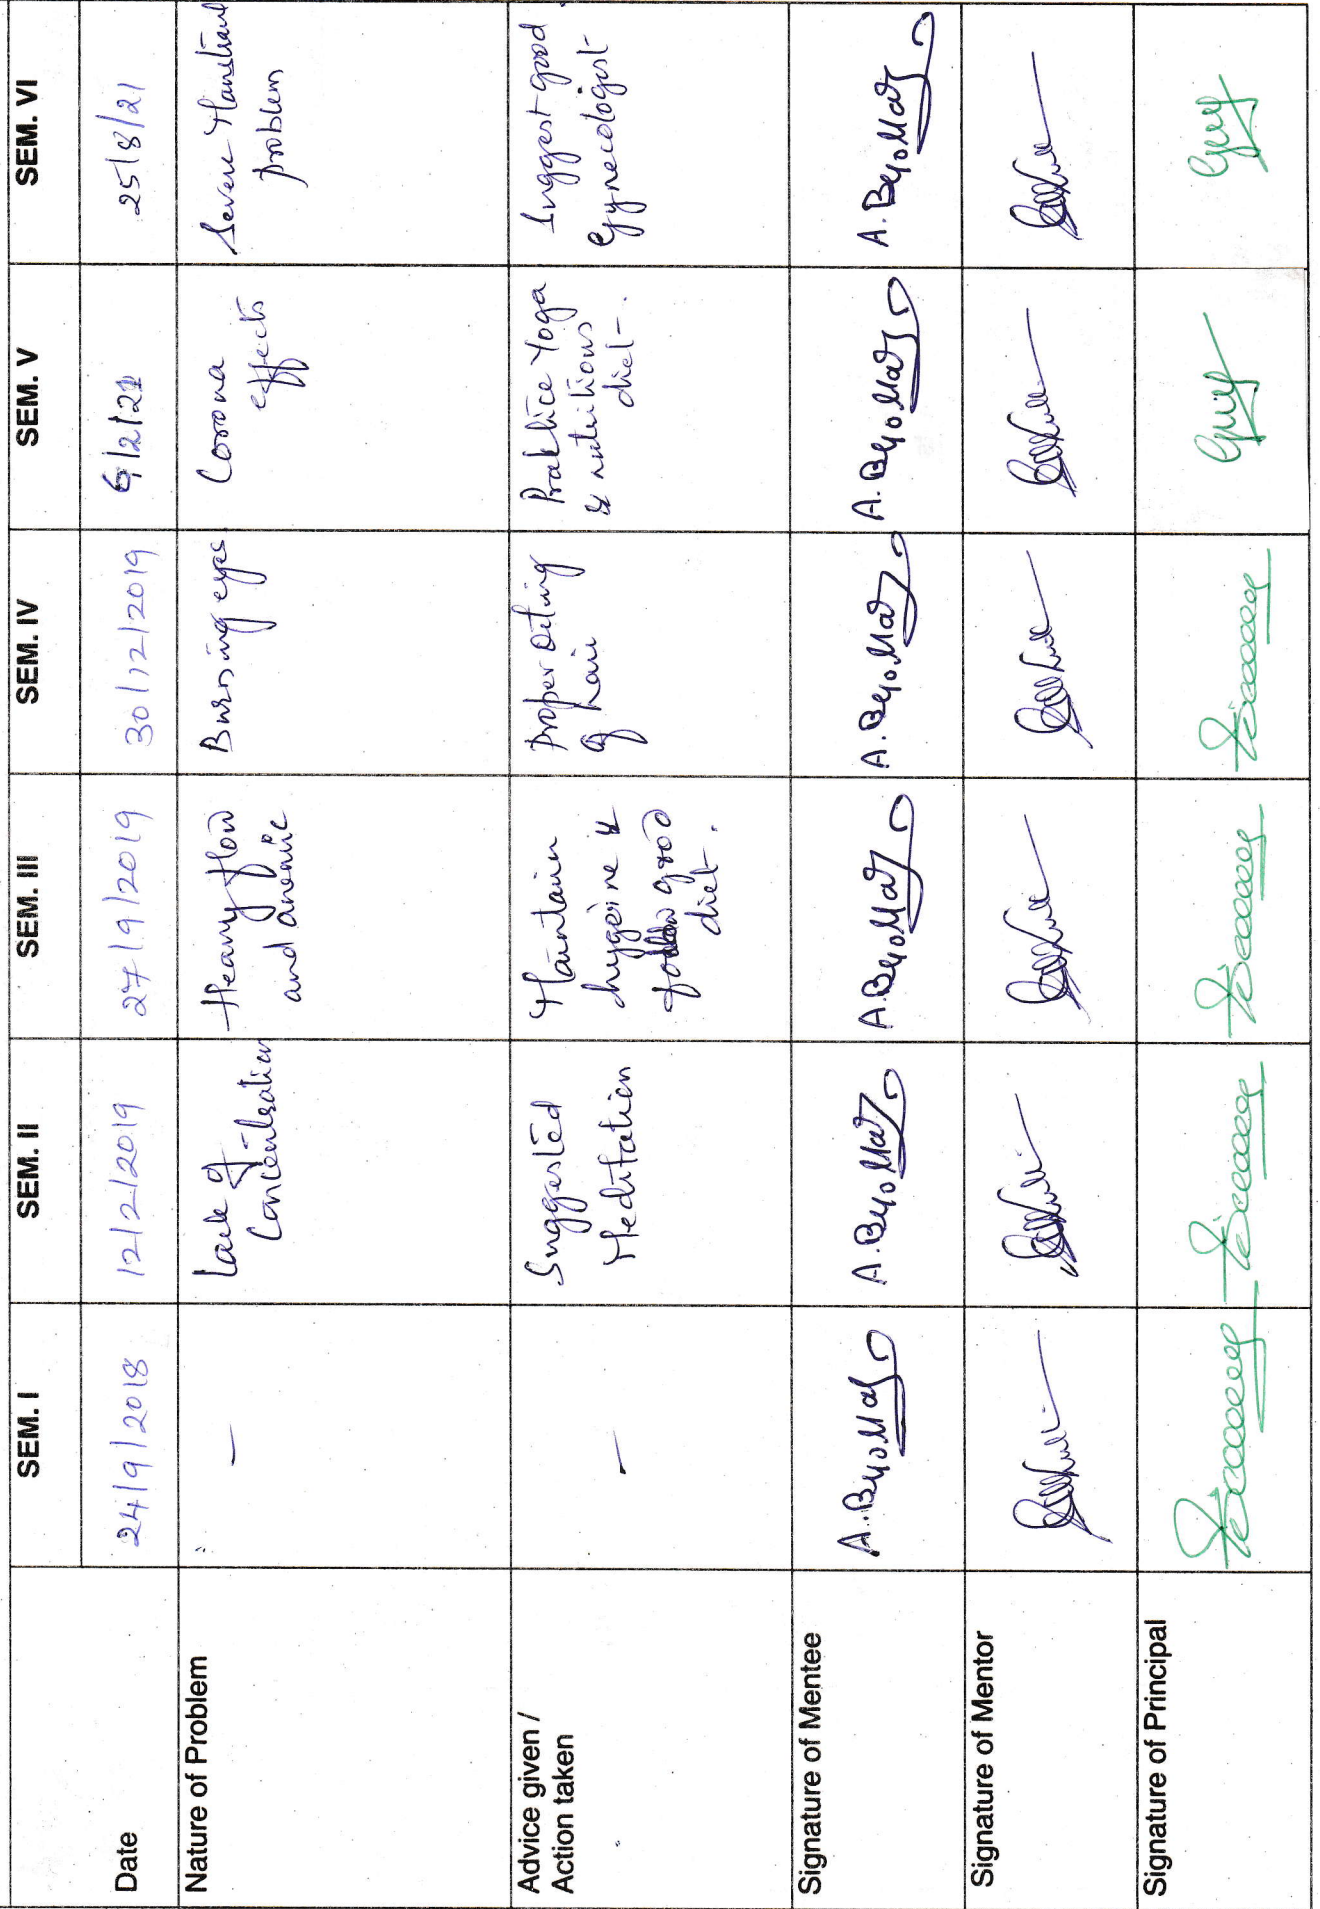 SEM. I SEM. II SEM. III SEM. IV SEM. V SEM. VI
Date 24/9/2018 12/2/2019 27/9/2019 30/12/2019 6/2/21 25/8/21
Nature of Problem
—
Lack of
Concentration
Heavy flow
and anemic
Burning eyes
Corona
effects
Severe Manstraul
problem
Advice given /
Action taken
—
Suggested
Meditation
Maintain
hygeine &
follow good
diet.
Proper Oiling
of hair
Praktice Yoga
& nutritious
diet.
Suggest good
Gynecologist
Signature of Mentee
Signature of Mentor
Signature of Principal